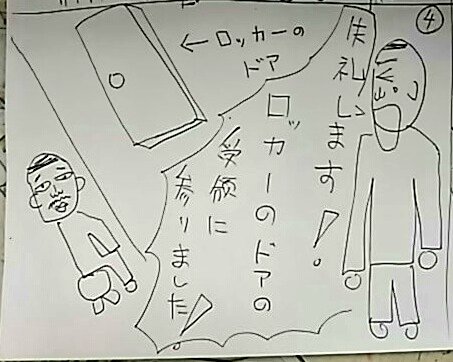 ④
失礼します!
ロッカーのドアの
受領に
参りました!
←ロッカーの
ドア